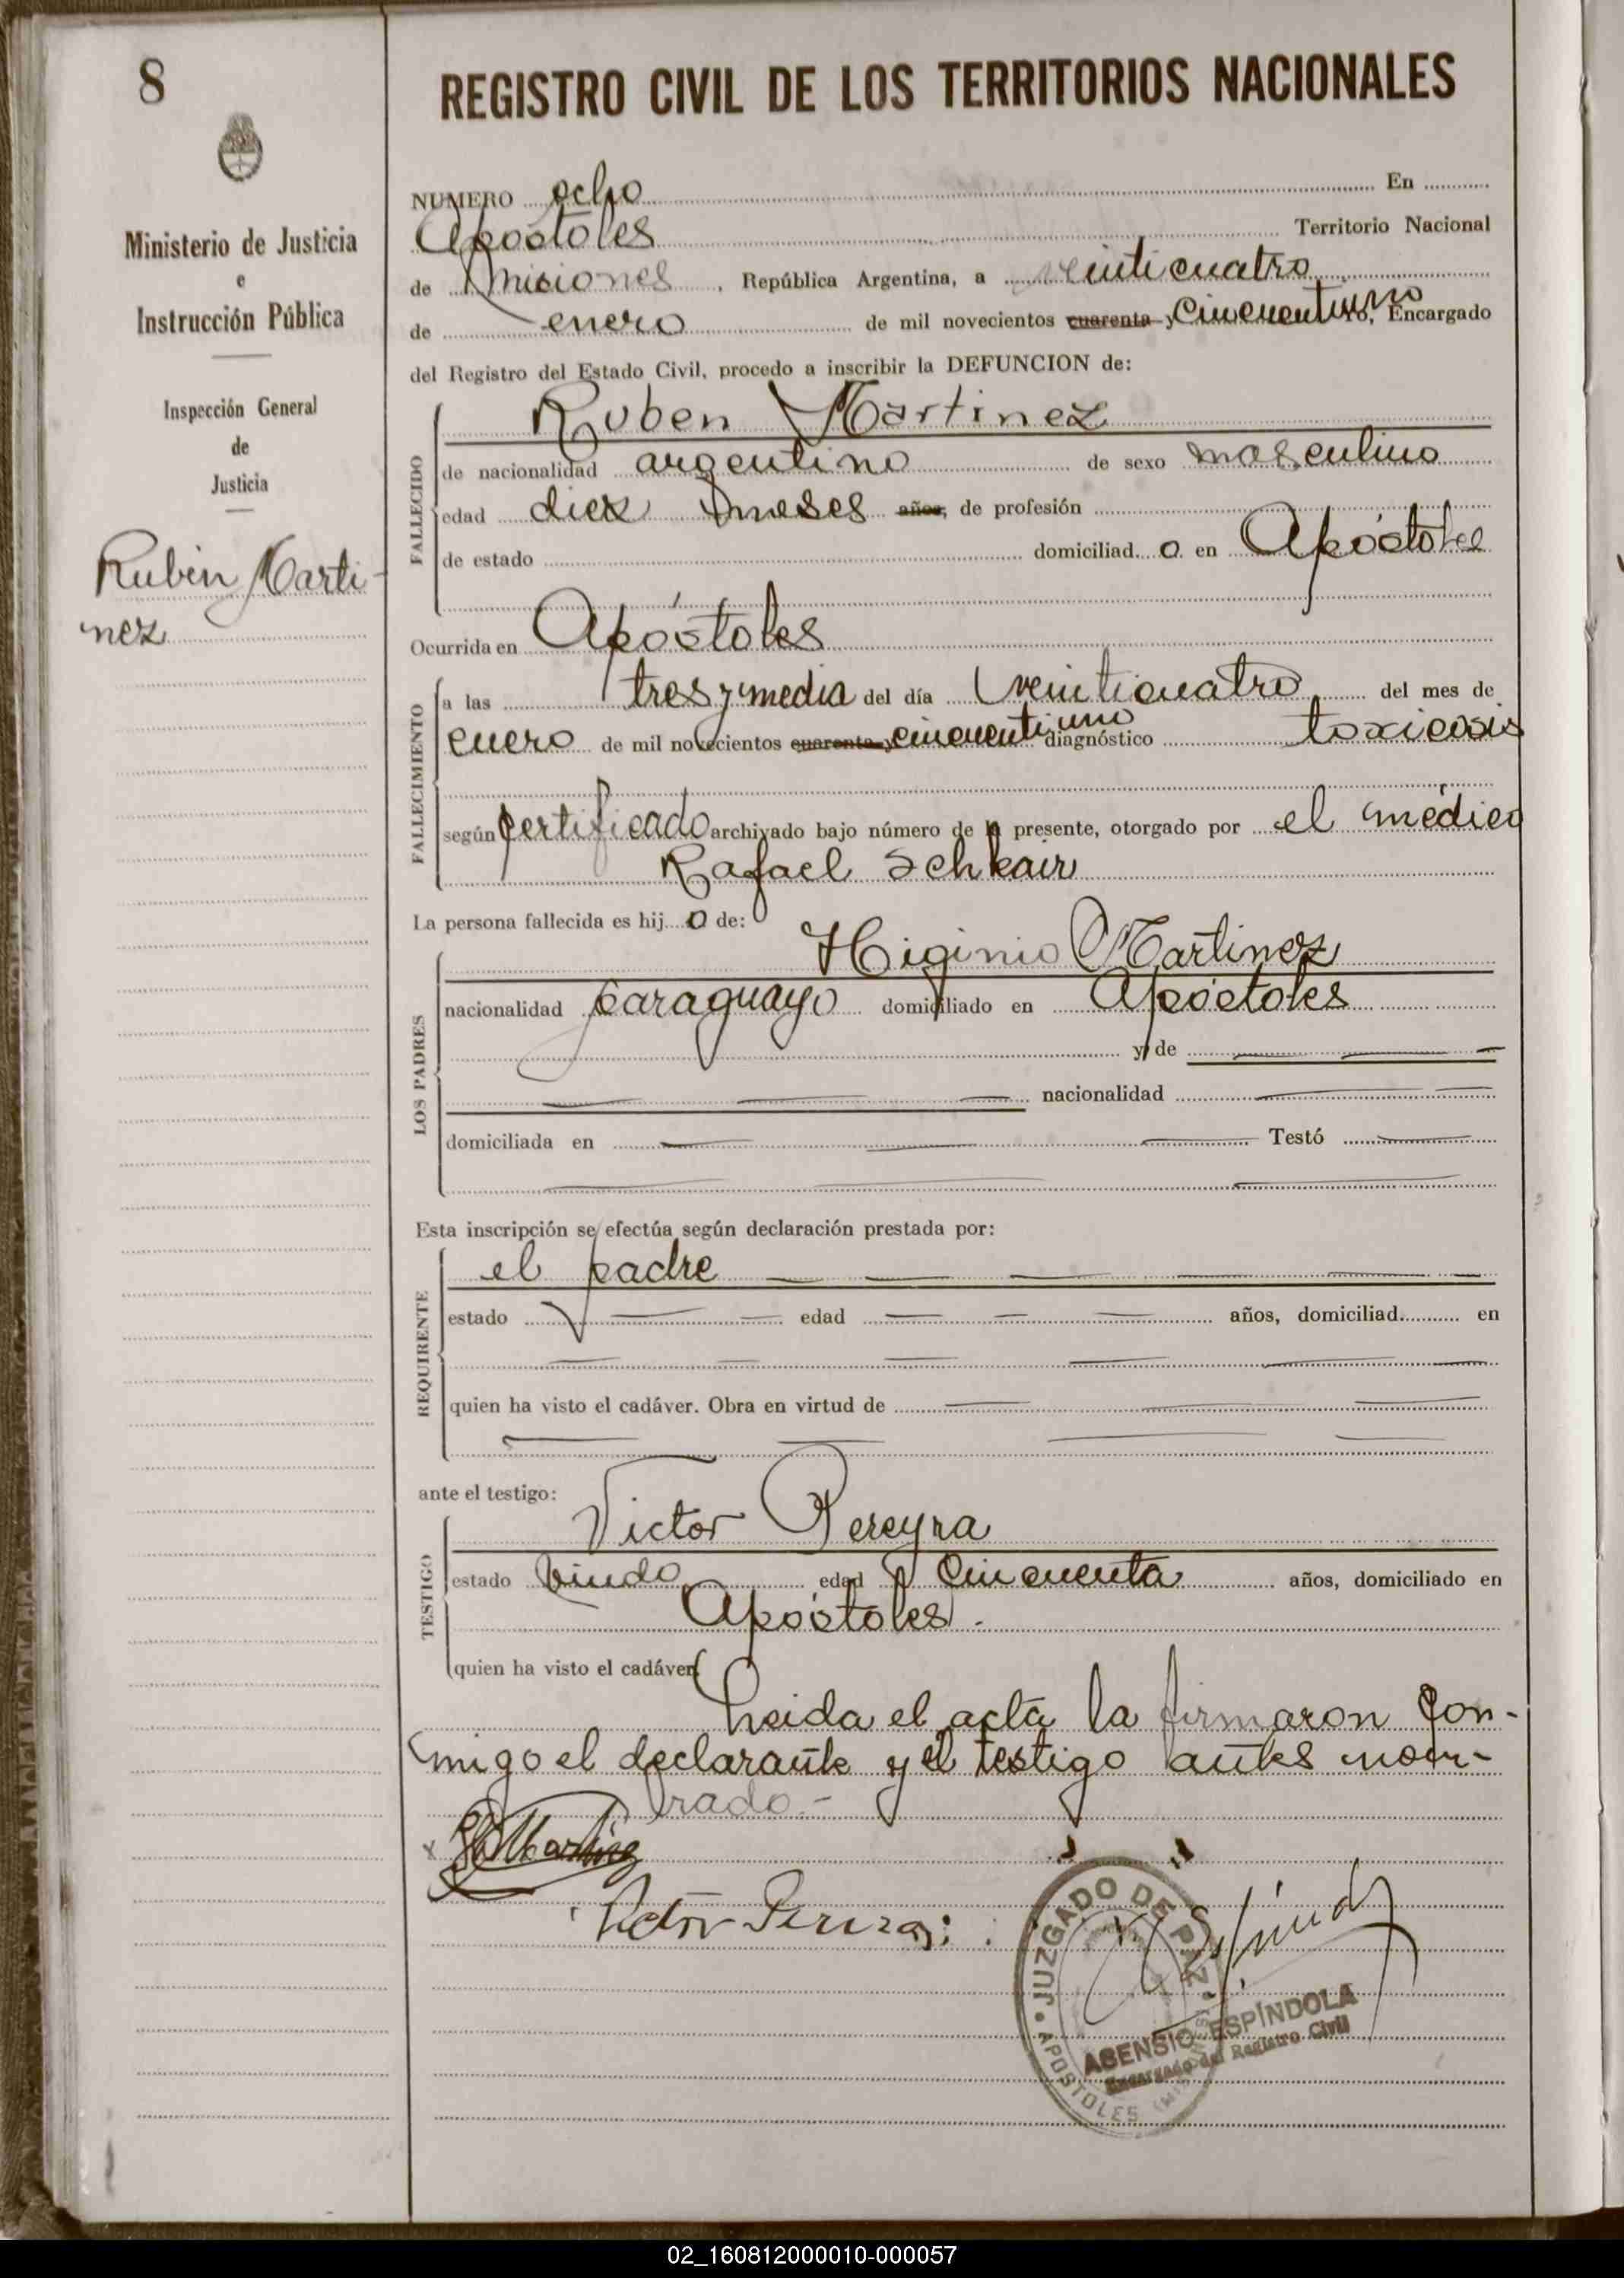 8
Ministerio de Justicia
e
Instrucción Pública
Inspección General
de
Justicia
Rubén Marti-
nez
REGISTRO CIVIL DE LOS TERRITORIOS NACIONALES
NUMERO ocho En
Apóstoles Territorio Nacional
de Misiones, República Argentina, a veinticuatro
de enero de mil novecientos cuarenta y Cincuentiuno, Encargado
del Registro del Estado Civil, procedo a inscribir la DEFUNCION de:
FALLECIDO
Ruben Martinez
de nacionalidad argentino de sexo masculino
edad diez meses años, de profesión
de estado domiciliad o en Apóstoles
Ocurrida en Apóstoles
FALLECIMIENTO
a las tres y media del día veinticuatro del mes de
enero de mil novecientos cuarenta y cincuentiuno diagnóstico toxicosis
según certificado archivado bajo número de la presente, otorgado por el médico
Rafael Schkair
La persona fallecida es hij o de:
LOS PADRES
Higinio Martinez
nacionalidad paraguayo domiciliado en Apóstoles
y de
nacionalidad
domiciliada en Testó
Esta inscripción se efectúa según declaración prestada por:
REQUIRENTE
el padre
estado edad años, domiciliad en
quien ha visto el cadáver. Obra en virtud de
ante el testigo:
TESTIGO
Victor Pereyra
estado viudo edad cincuenta años, domiciliado en
Apóstoles.
quien ha visto el cadáver
Leida el acta la firmaron con-
migo el declarante y el testigo antes nom-
brado.-
x Martinez
Victor
JUZGADO DE PAZ
APOSTOLES
ASENSIO ESPÍNDOLA
Encargado del Registro Civil
02_160812000010-000057